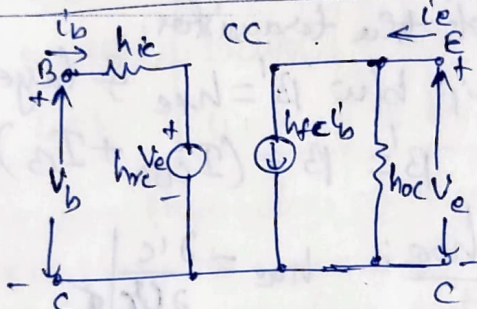 ib hie CC ie
B E
+ +
Vb hrc Ve + hfc ib hoc Ve
-
- C C -